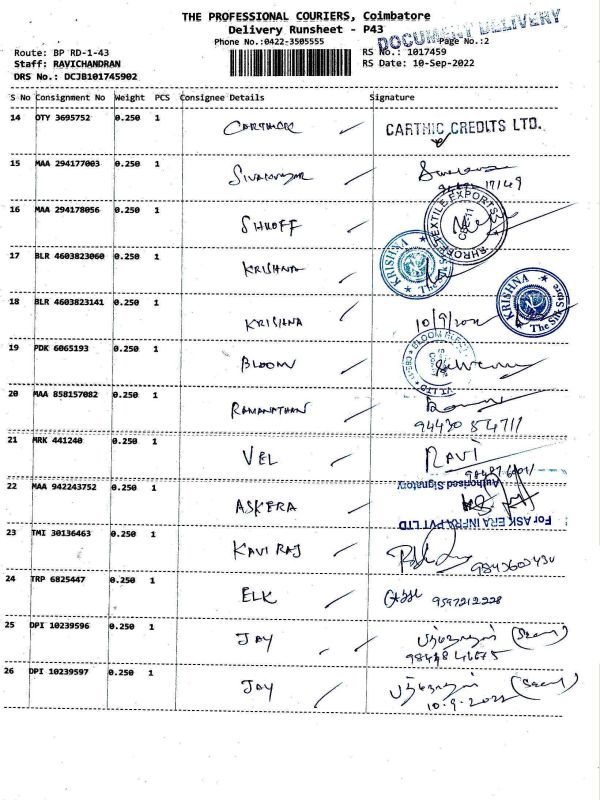 THE PROFESSIONAL COURIERS, Coimbatore
Delivery Runsheet - P43
DOCUMENT DELIVERY
Phone No.:0422-3505555
Page No.:2
Route: BP RD-1-43
RS No.: 1017459
Staff: RAVICHANDRAN
RS Date: 10-Sep-2022
DRS No.: DCJB101745902
S No Consignment No Weight PCS Consignee Details Signature
14 OTY 3695752 0.250 1 CARTHIC CARTHIC CREDITS LTD.
15 MAA 294177003 0.250 1
16 MAA 294178056 0.250 1 SHROFF
SHROFF TEXTILE EXPORTS
17 BLR 4603823060 0.250 1 KRISHNA
KRISHNA The Silk Store
18 BLR 4603823141 0.250 1 KRISHNA 10/9/2022
KRISHNA The Silk Store
19 PDK 6065193 0.250 1 BLOOM
20 MAA 858157082 0.250 1 RAMANATHAN
94430 54711
21 MRK 441240 0.250 1 VEL RAVI
22 MAA 942243752 0.250 1 ASKERA
Authorised Signatory
For ASK ERA INFRA PVT LTD
23 TMI 30136463 0.250 1 KAVI RAJ
9843603430
24 TRP 6825447 0.250 1 ELK 9597212228
25 DPI 10239596 0.250 1 JAY
26 DPI 10239597 0.250 1 JAY
10.9.2022